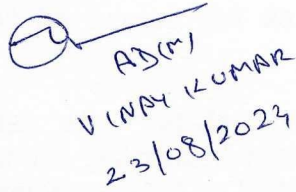 AD(M)
VINAY KUMAR
23/08/2024